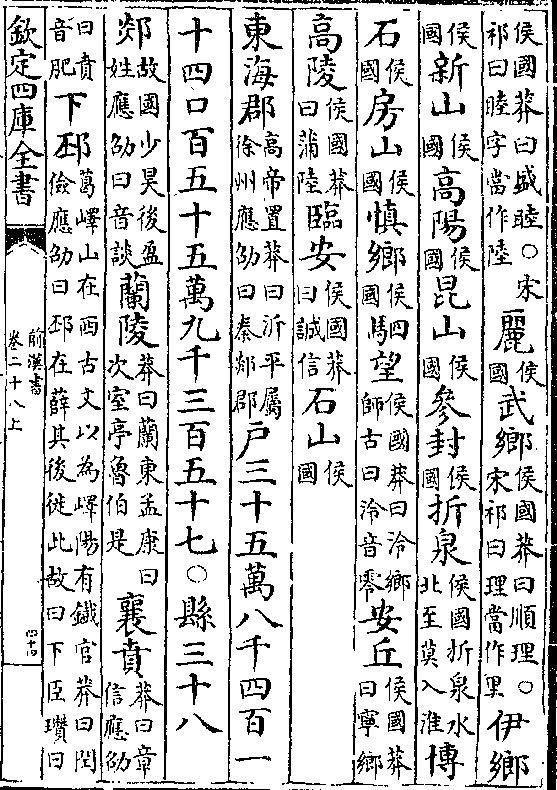 侯國莽曰盛睦○宋祁曰睦字當作陸麗侯國武鄉侯國莽曰順理○宋祁曰理當作里伊鄉
侯國新山侯國高陽侯國昆山侯國參封侯國折泉侯國折泉水北至莫入淮博
石侯國房山侯國慎鄉侯國駟望侯國莽曰泠鄉師古曰泠音零安丘侯國莽曰寧鄉
高陵侯國莽曰蒲陸臨安侯國莽曰誠信石山侯國
東海郡高帝置莽曰沂平屬徐州應劭曰秦郯郡戶三十五萬八千四百一
十四口百五十五萬九千三百五十七○縣三十八
郯故國少昊後盈姓應劭曰音談蘭陵莽曰蘭東孟康曰次室亭魯伯是襄賁莽曰章信應劭
曰賁音肥下邳葛嶧山在西古文以為嶧陽有鐵官莽曰閏儉應劭曰邳在薛其後徙此故曰下臣瓚曰
欽定四庫全書
前漢書
卷二十八上
四十四